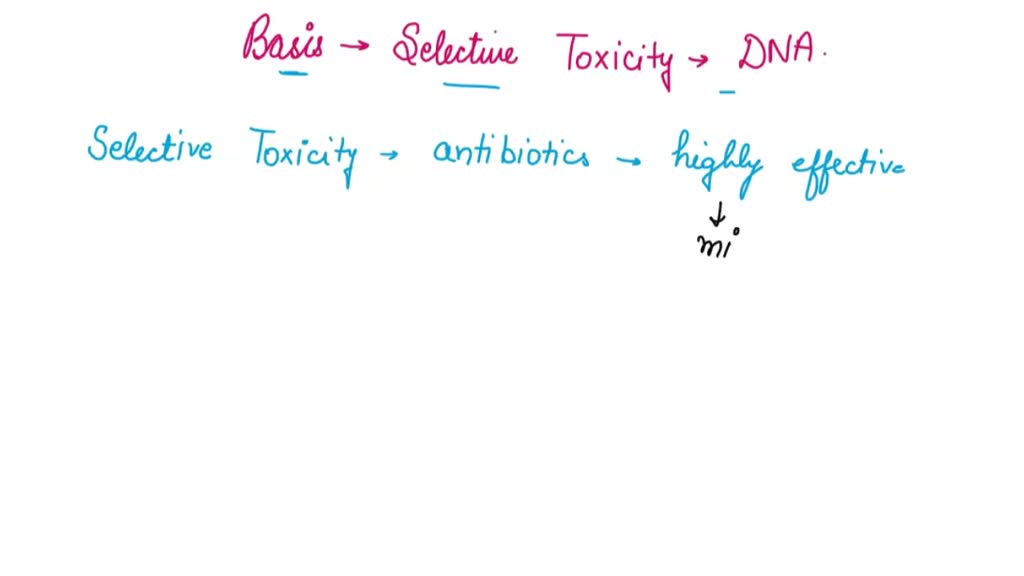 Basis → Selective Toxicity → DNA.
Selective Toxicity → antibiotics → highly effective
↓
mi